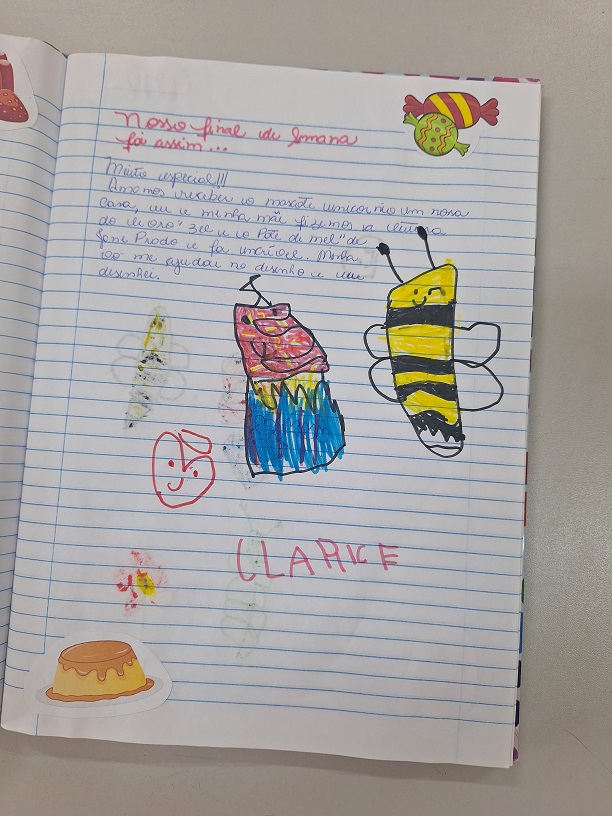 Nosso final de semana
foi assim...
Muito especial!!!
Amamos receber o mascote unicórnio em nossa
casa, eu e minha mãe fizemos a leitura
do livro "Zeo e o Pote de mel" de
Ione Prado e foi incrível. Minha
me ajudou no desenho e eu
desenhei.
CLARICE